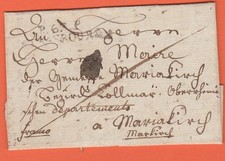 An Herrn
Herrn Maire
der Gemeine Mariakirch
Bezirk Collmar Oberrheini
schen departements
franco a Mariakirch
Markirch